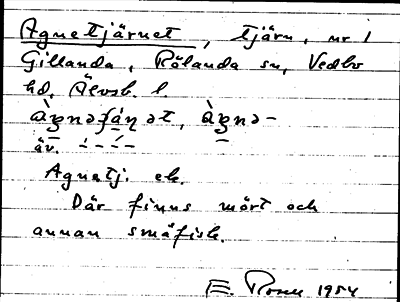 Agnetjärnet, tjärn, nr 1
Gillanda, Rölanda sn, Vedbo
hd, Älvsb. l.
àgnəʃáɳət, àgnə-
äv.
Agnetj. ek.
Där finns mört och
annan småfisk.
E. Rosen 1954